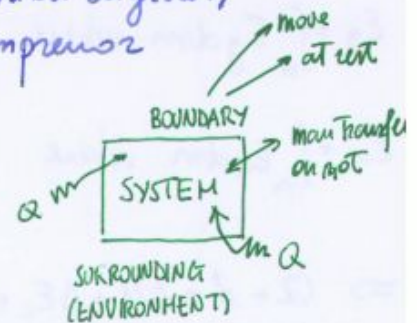 move
at rest
BOUNDARY
mass transfer
or not
SYSTEM
Q
Q
SURROUNDING
(ENVIRONMENT)